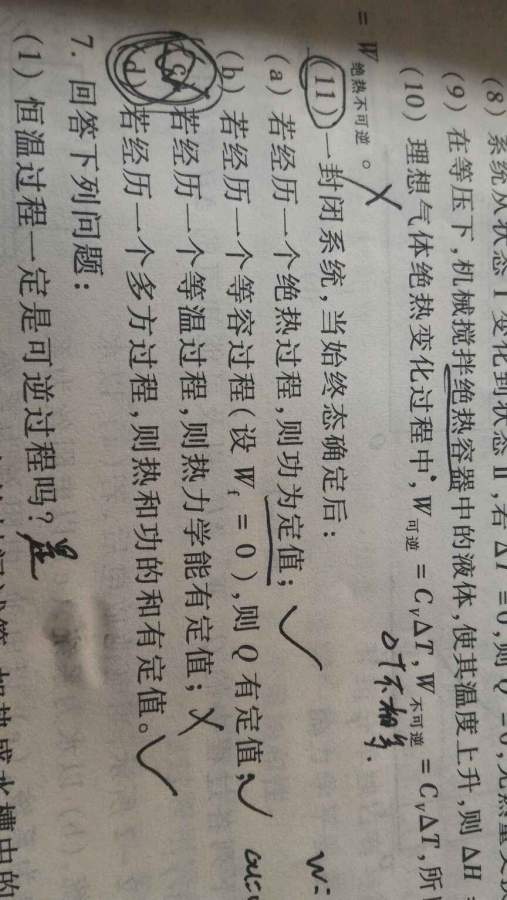 (8) 系统从状态Ⅰ变化到状态Ⅱ,若ΔT=0,则Q=0,无热量交
(9) 在等压下,机械搅拌绝热容器中的液体,使其温度上升,则ΔH
(10) 理想气体绝热变化过程中,W可逆=CVΔT,W不可逆=CVΔT,所
=W绝热不可逆。 ╳
ΔT不相等.
(11) 一封闭系统,当始终态确定后:
(a) 若经历一个绝热过程,则功为定值; ✓
W=
(b) 若经历一个等容过程(设Wf=0),则Q有定值; ✓
(c) 若经历一个等温过程,则热力学能有定值; ╳
(d) 若经历一个多方过程,则热和功的和有定值。 ✓
7. 回答下列问题:
(1) 恒温过程一定是可逆过程吗? 是